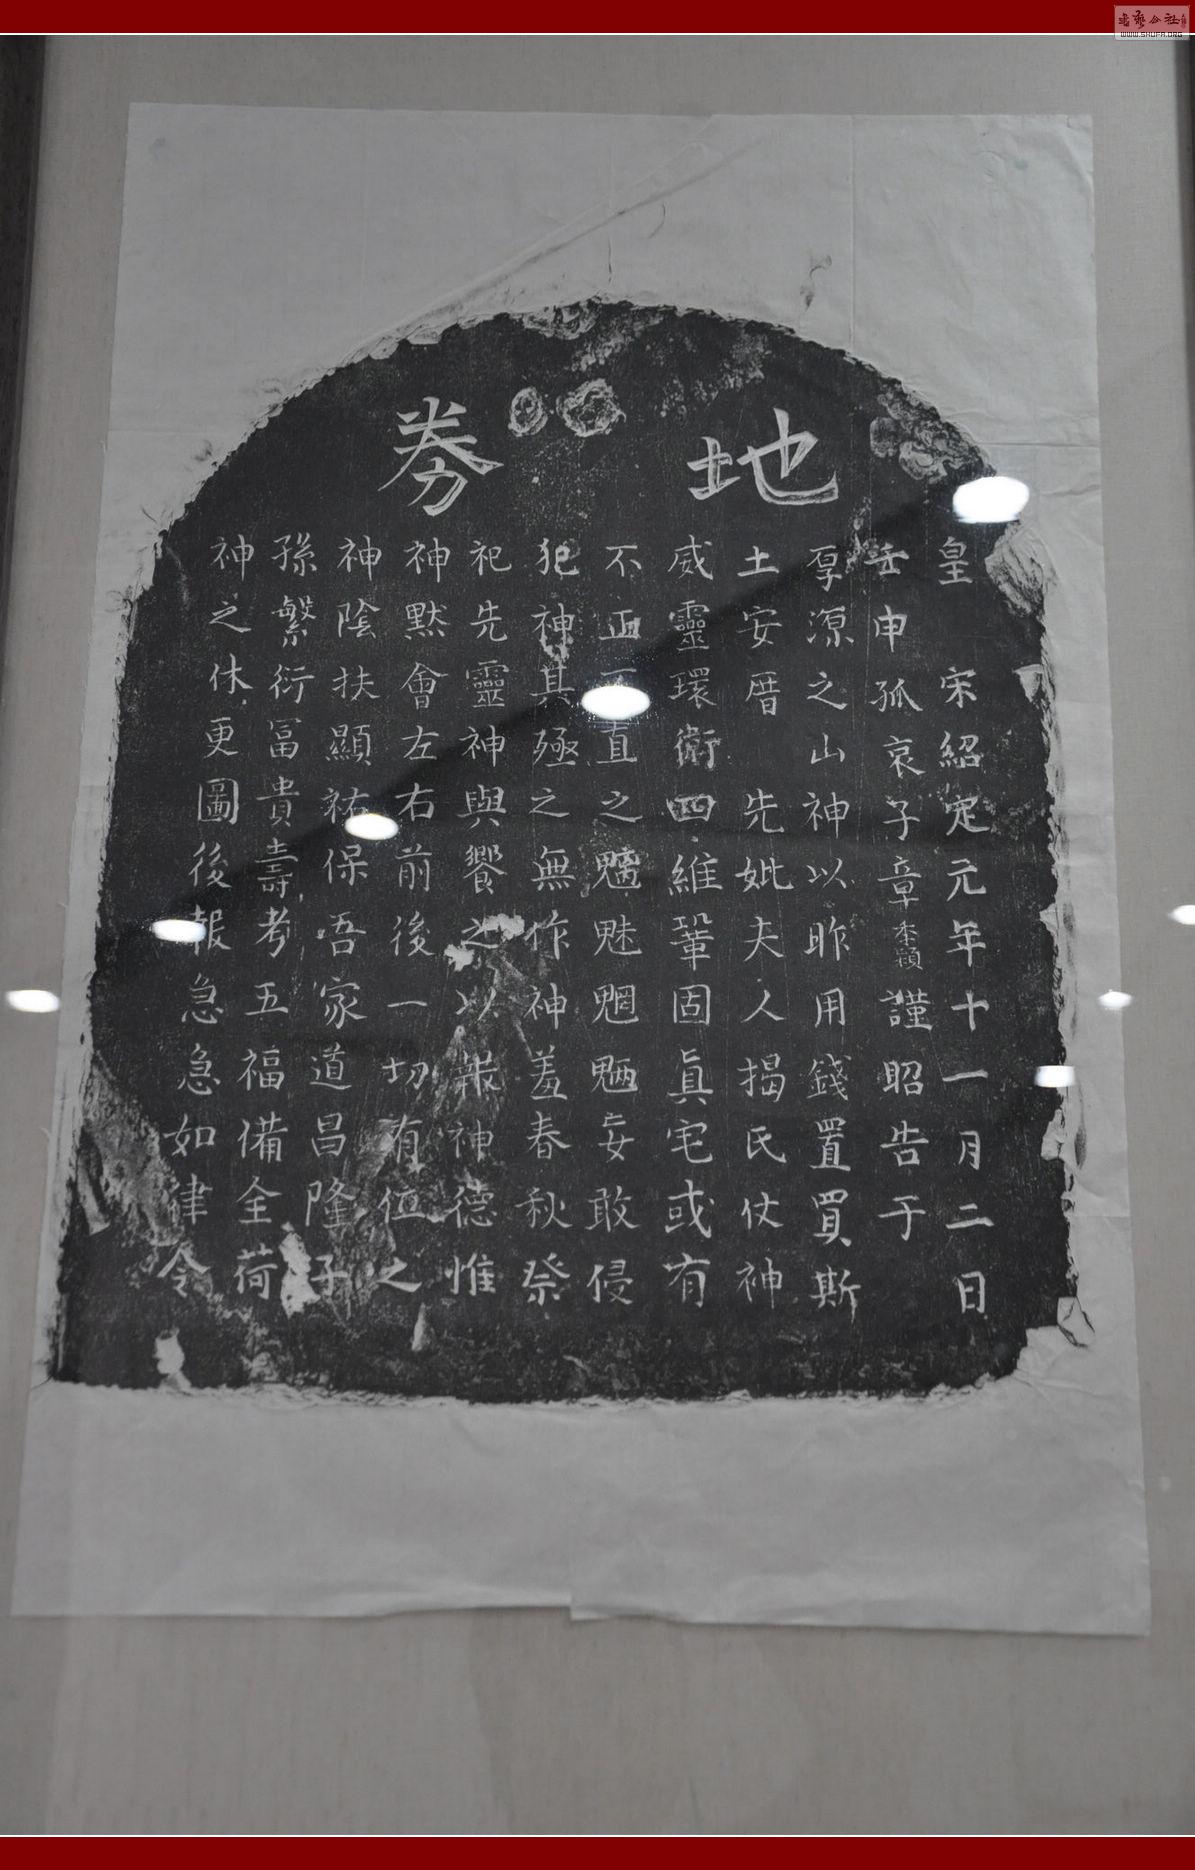 地券
皇 宋紹定元年十一月二日
壬申孤哀子章 謹昭告于
厚源之山神以昨用錢置買斯
土安厝 先妣夫人揭氏仗神
威靈環衛四維鞏固真宅或有
不正不直之魑魅魍魎妄敢侵
犯神其殛之無作神羞春秋祭
祀先靈神與饗之以報神德惟
神默會左右前後一切有位之
神陰扶顯祐保吾家道昌隆子
孫繁衍冨貴壽考五福備全荷
神之休更圖後報急急如律令
WWW.SHUFA.ORG